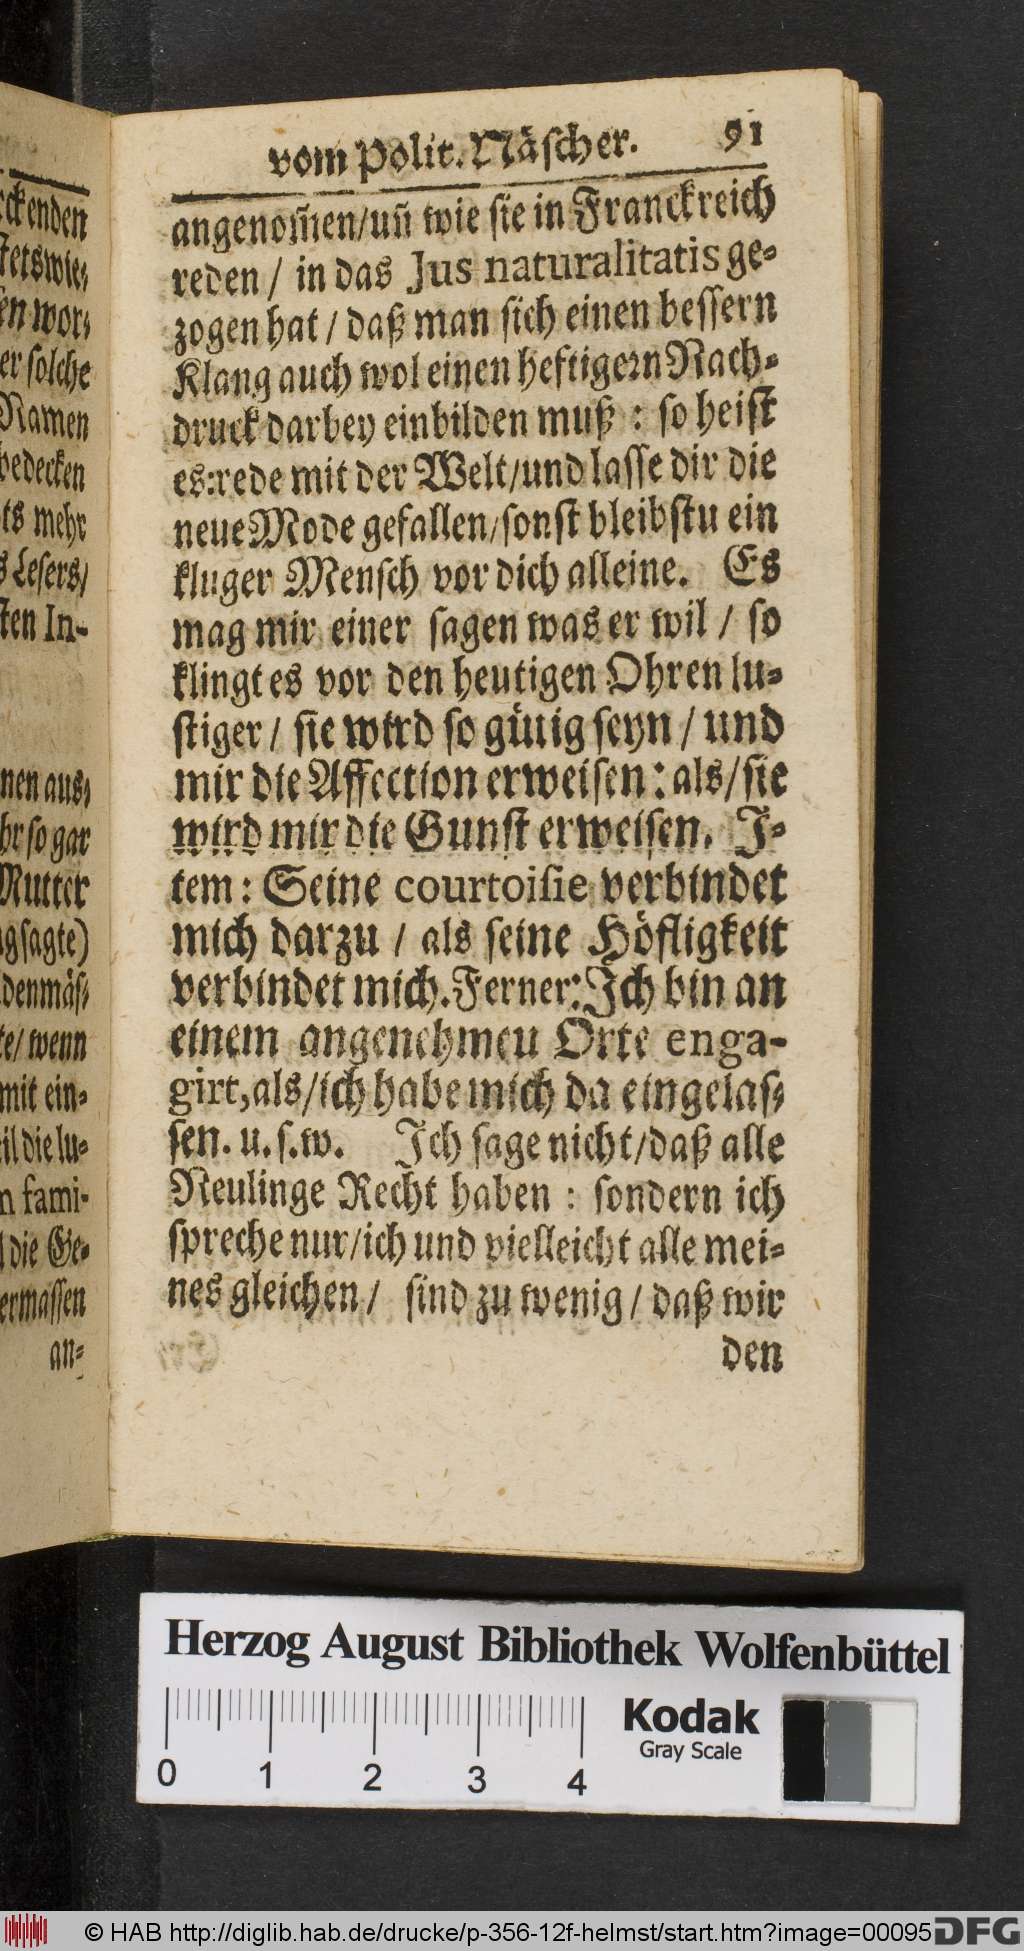 vom Polit. Näscher. 91
angenom̃en/un̄ wie sie in Franckreich
reden / in das Jus naturalitatis ge-
zogen hat / daß man sich einen bessern
Klang auch wol einen heftigern Nach-
druck darbey einbilden muß : so heist
es:rede mit der Welt/und lasse dir die
neue Mode gefallen/sonst bleibstu ein
kluger Mensch vor dich alleine. Es
mag mir einer sagen was er wil / so
klingt es vor den heutigen Ohren lu-
stiger / sie wird so gütig seyn / und
mir die Affection erweisen: als/sie
wird mir die Gunst erweisen. J-
tem: Seine courtoisie verbindet
mich darzu / als seine Höfligkeit
verbindet mich. Ferner: Jch bin an
einem angenehmeu Orte enga-
girt, als/ich habe mich da eingelas-
sen. u. s. w. Jch sage nicht/daß alle
Neulinge Recht haben : sondern ich
spreche nur/ich und vielleicht alle mei-
nes gleichen / sind zu wenig / daß wir
den
ckenden
tetswie-
en wor-
er solche
Namen
bedecken
ts mehr
s Lesers/
ten In-
nen aus-
hr so gar
Mutter
gsagte)
denmäs-
te/ wenn
mit ein-
il die lu-
n fami-
die Ge-
ermassen
an-
Herzog August Bibliothek Wolfenbüttel
0 1 2 3 4
Kodak
Gray Scale
© HAB http://diglib.hab.de/drucke/p-356-12f-helmst/start.htm?image=00095
DFG